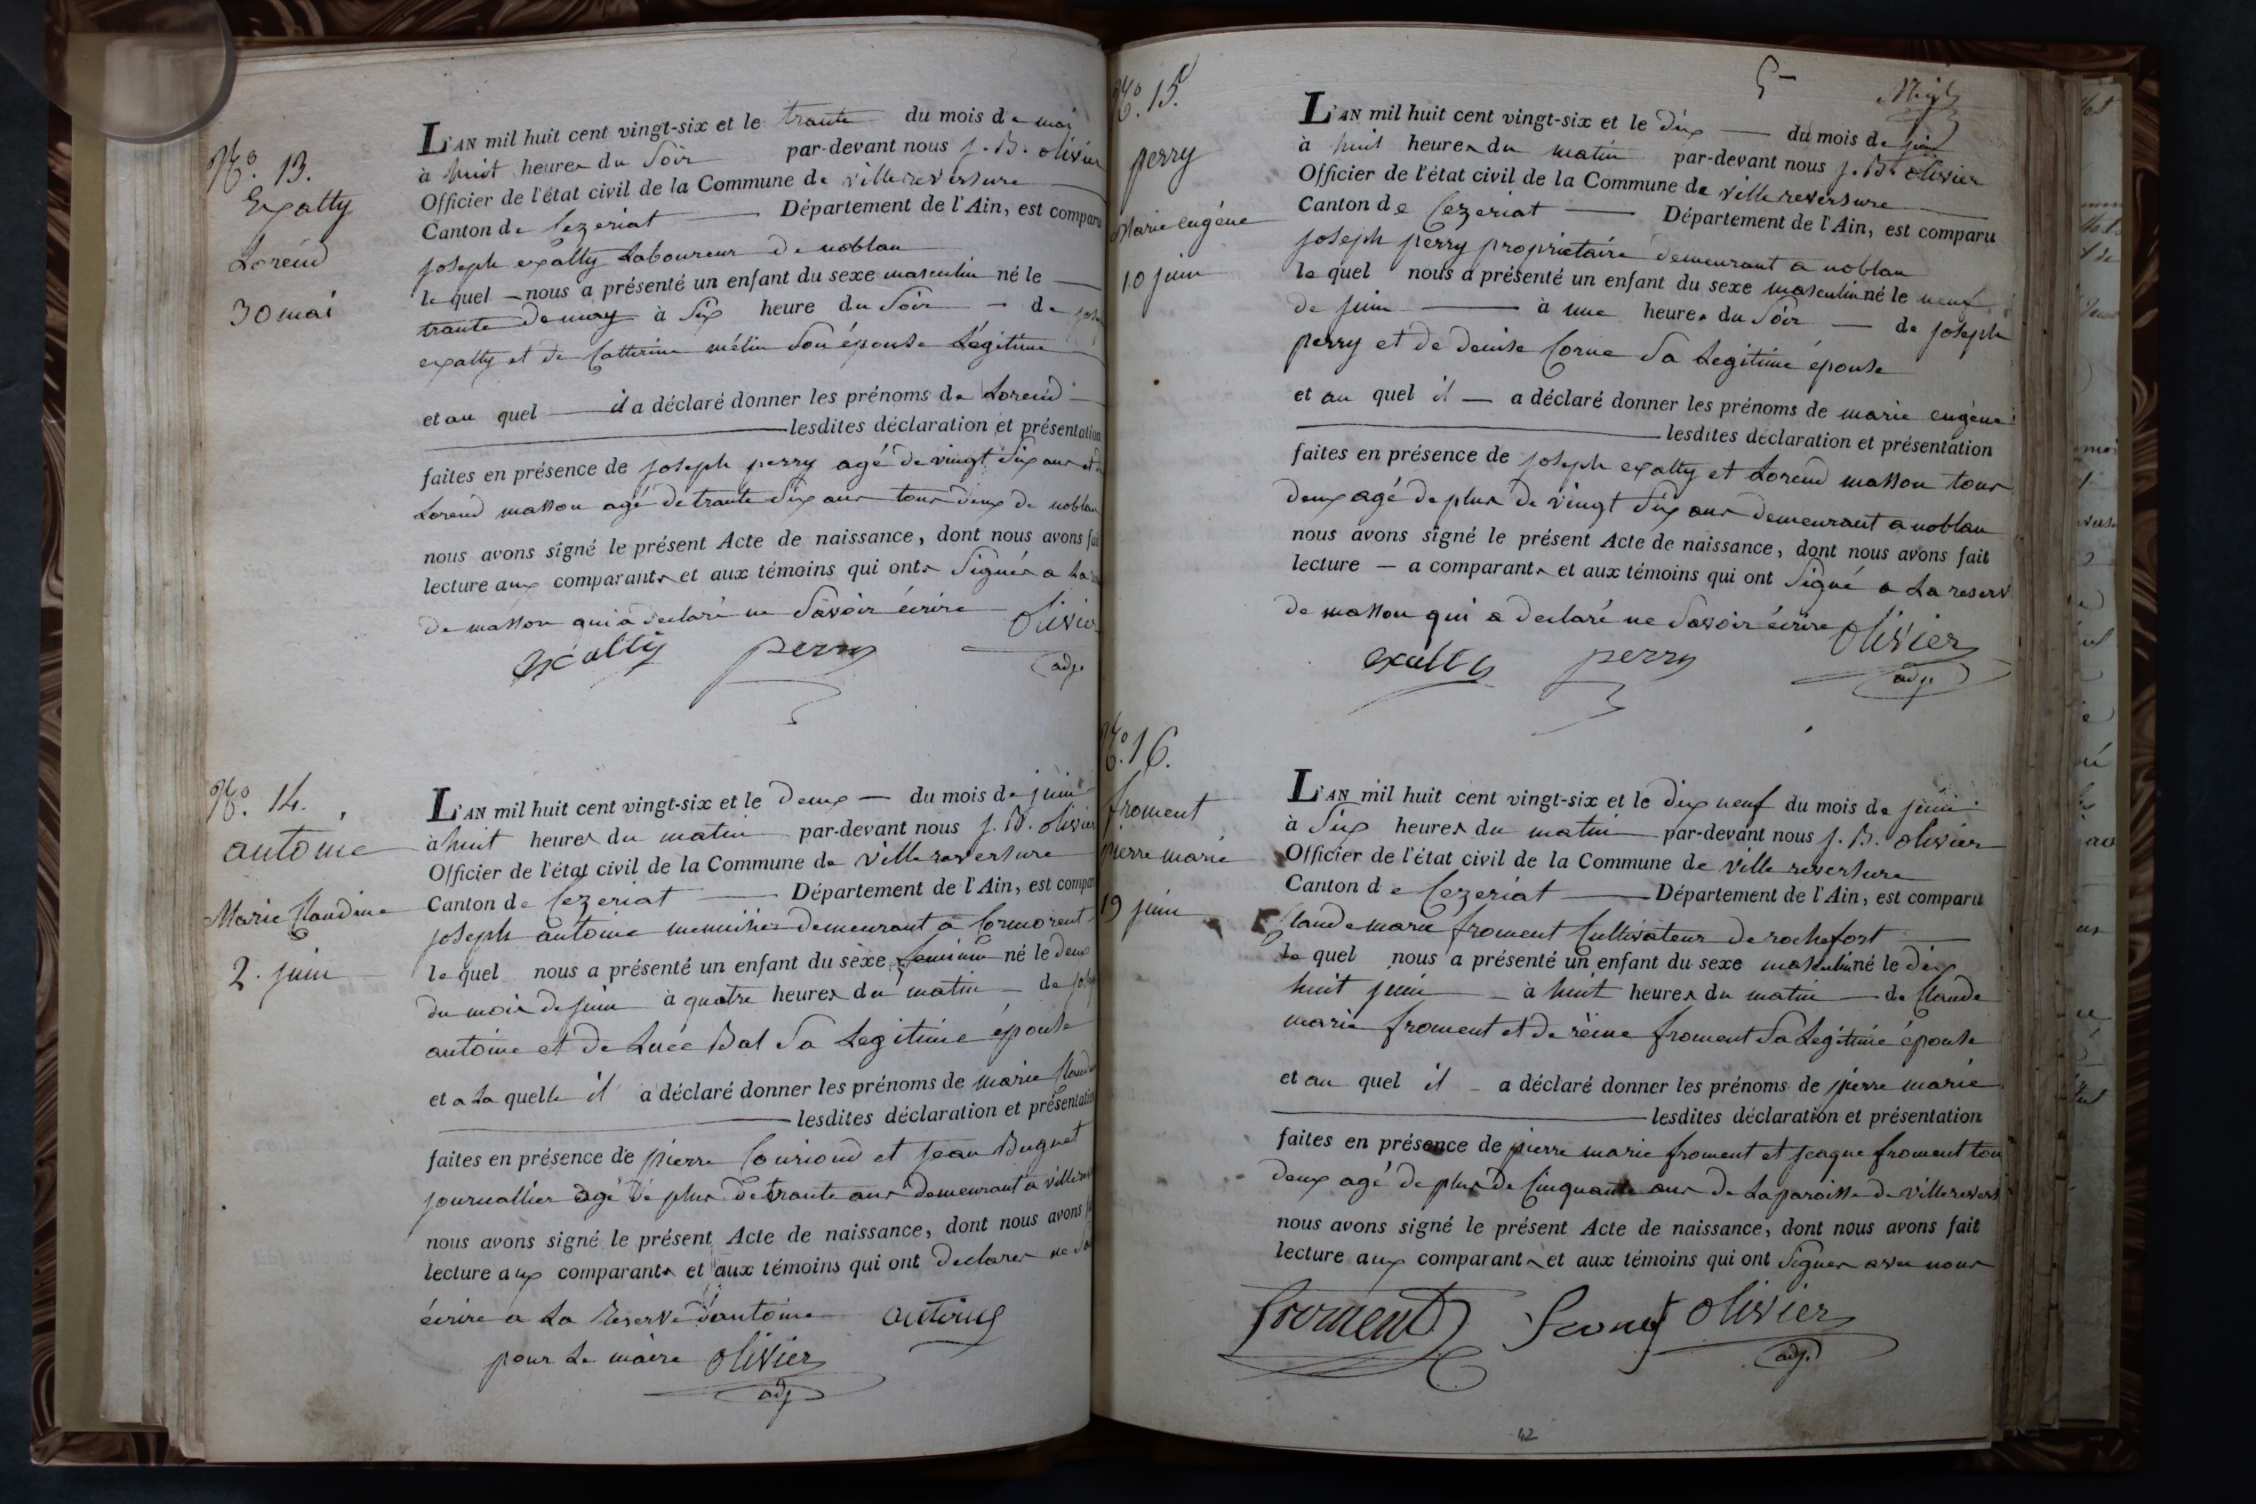 N.o 13.
Exatty
Lorend
30 mai
L'AN mil huit cent vingt-six et le trante du mois de mai
à huit heures du soir par-devant nous J. B. olivier
Officier de l'état civil de la Commune de villereversure
Canton de Cezeriat Département de l'Ain, est comparu
joseph exatty Laboureur de noblan
le quel nous a présenté un enfant du sexe masculin né le
trante de may à six heure du soir de jose
exatty et de Catterine mélin son épouse Légitime
et au quel il a déclaré donner les prénoms de Lorend
lesdites déclaration et présentation
faites en présence de joseph perry agé de vingt six ans et de
Lorend masson agé de trante six ans tous deux de noblan
nous avons signé le présent Acte de naissance, dont nous avons fai
lecture aux comparants et aux témoins qui onts signés a La
de masson qui a declaré ne savoir écrire olivier
exatty perry adj.
N.o 14.
antoine
Marie Claudine
2. juin
L'AN mil huit cent vingt-six et le deux du mois de juin
à huit heures du matin par-devant nous J. B. olivier
Officier de l'état civil de la Commune de villereversure
Canton de Cezeriat Département de l'Ain, est compar
joseph antoine menuisier demeurant a Cormorent
le quel nous a présenté un enfant du sexe feminin né le deux
du mois de juin à quatre heures du matin de josep
antoine et de Luce Bal sa Legitime épouse
et a La quelle il a déclaré donner les prénoms de marie Claudin
lesdites déclaration et présentation
faites en présence de pierre Courioud et jean Buguet
journallier agé de plus de trante ans demeurant a villere
nous avons signé le présent Acte de naissance, dont nous avons f
lecture aux comparants et aux témoins qui ont declarer ne sa
écrire a La reserve d'antoine antoine
pour Le maire olivier
adj
5
N.o 15.
perry
Marie eugéne
10 juin
L'AN mil huit cent vingt-six et le dix du mois de juin
à huit heures du matin par-devant nous J. B. olivier
Officier de l'état civil de la Commune de villereversure
Canton de Cezeriat Département de l'Ain, est comparu
joseph perry propriétaire demeurant a noblan
le quel nous a présenté un enfant du sexe masculin né le neuf
de juin à une heures du soir de joseph
perry et de denise Corne sa Legitime épouse
et au quel il a déclaré donner les prénoms de marie eugéne
lesdites déclaration et présentation
faites en présence de joseph exatty et Lorend masson tous
deux agé de plus de vingt six ans demeurant a noblan
nous avons signé le présent Acte de naissance, dont nous avons fait
lecture a comparants et aux témoins qui ont signé a La reserv
de masson qui a declaré ne savoir écrire olivier
exatty perry adj.
N.o 16.
froment
pierre marie
19 juin
L'AN mil huit cent vingt-six et le dix neuf du mois de juin
à six heures du matin par-devant nous J. B. olivier
Officier de l'état civil de la Commune de villereversure
Canton de Cezeriat Département de l'Ain, est comparu
Claude marie froment Cultivateur de rochefort
Le quel nous a présenté un enfant du sexe masculin né le dix
huit juin à huit heures du matin de Claude
marie froment et de reine froment sa Legitime épouse
et au quel il a déclaré donner les prénoms de pierre marie
lesdites déclaration et présentation
faites en présence de pierre marie froment et jeaque froment tou
deux agé de plus de Cinquante ans de La paroisse de villerevers
nous avons signé le présent Acte de naissance, dont nous avons fait
lecture aux comparants et aux témoins qui ont signer avec nous
froment olivier
adj.
42